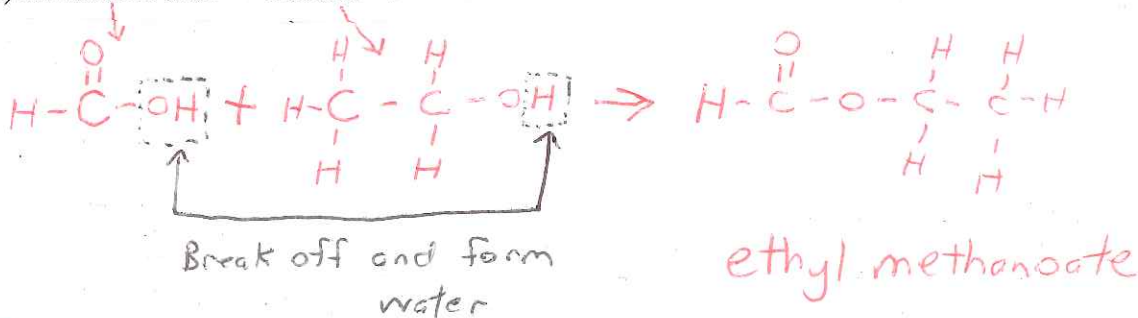 H H O H H
O
H-C-OH + H-C-C-OH → H-C-O-C-C-H
H H H H
Break off and form
water
ethyl methanoate